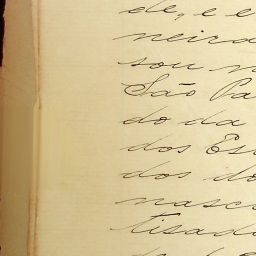 de, e e
neira
sou n
São Pa
do da
dos Es
dos do
nasc
tisad